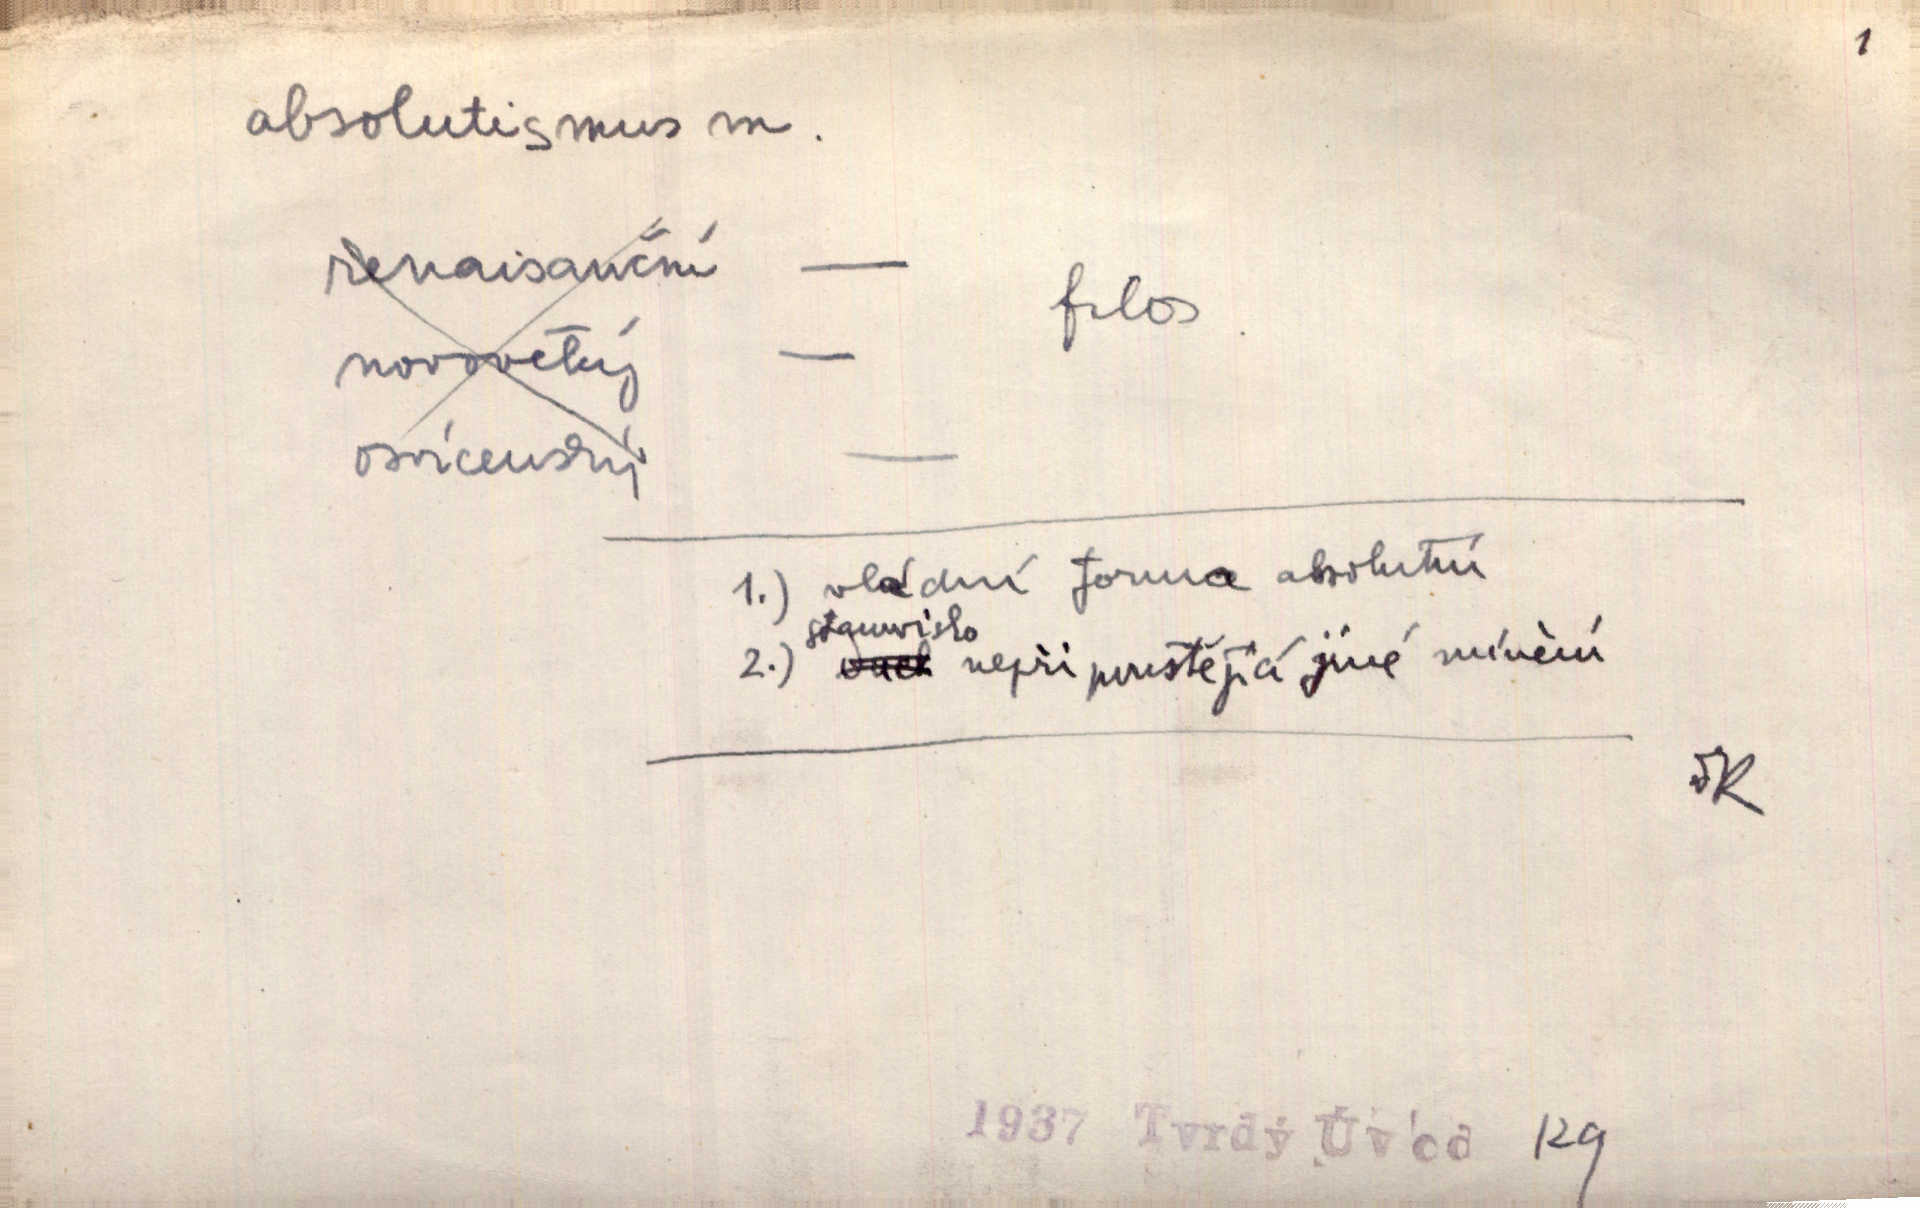 1
absolutismus m.
renaisanční —
filos.
novověký —
osvícenský —
1.) vládní forma absolutní
stanovisko
2.) nepřipouštějící jiné mínění
1937 Tvrdý Úvod 129